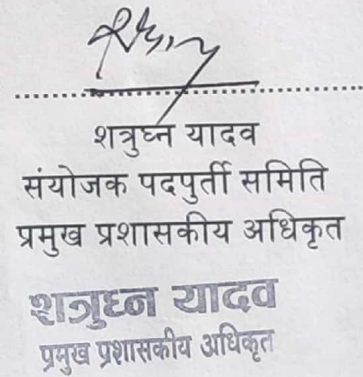 शत्रुघ्न यादव
संयोजक पदपुर्ती समिति
प्रमुख प्रशासकीय अधिकृत
शत्रुघ्न यादव
प्रमुख प्रशासकीय अधिकृत